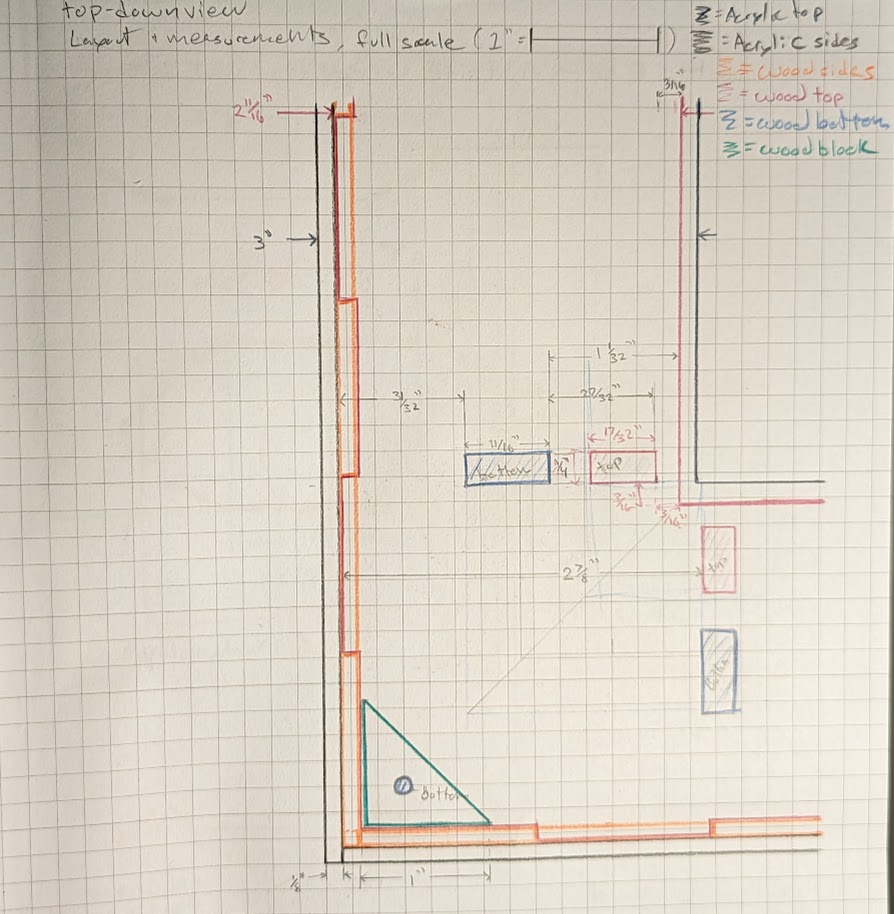 top-down view
Layout + measurements, full scale (1"= )
= Acrylic top
= Acrylic sides
= wood sides
= wood top
= wood bottom
= wood block
3/16"
2 11/16"
3"
1 1/32"
31/32"
27/32"
11/16"
17/32"
bottom
1/4"
top
3/16"
3/16"
2 7/8"
top
bottom
bottom
1/8"
1"